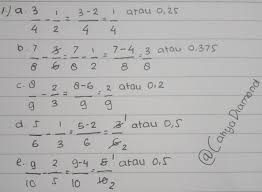 1.) a. 3/4 - 1/2 = 3-2/4 = 1/4 atau 0,25
b. 7/8 - 3/6 = 7/8 - 1/2 = 7-4/8 = 3/8 atau 0,375
c. 8/9 - 2/3 = 8-6/9 = 2/9 atau 0,2
d. 5/6 - 1/3 = 5-2/6 = 3/6 1/2 atau 0,5
e. 9/10 - 2/5 = 9-4/10 = 5/10 1/2 atau 0,5
@CahyaDiamond